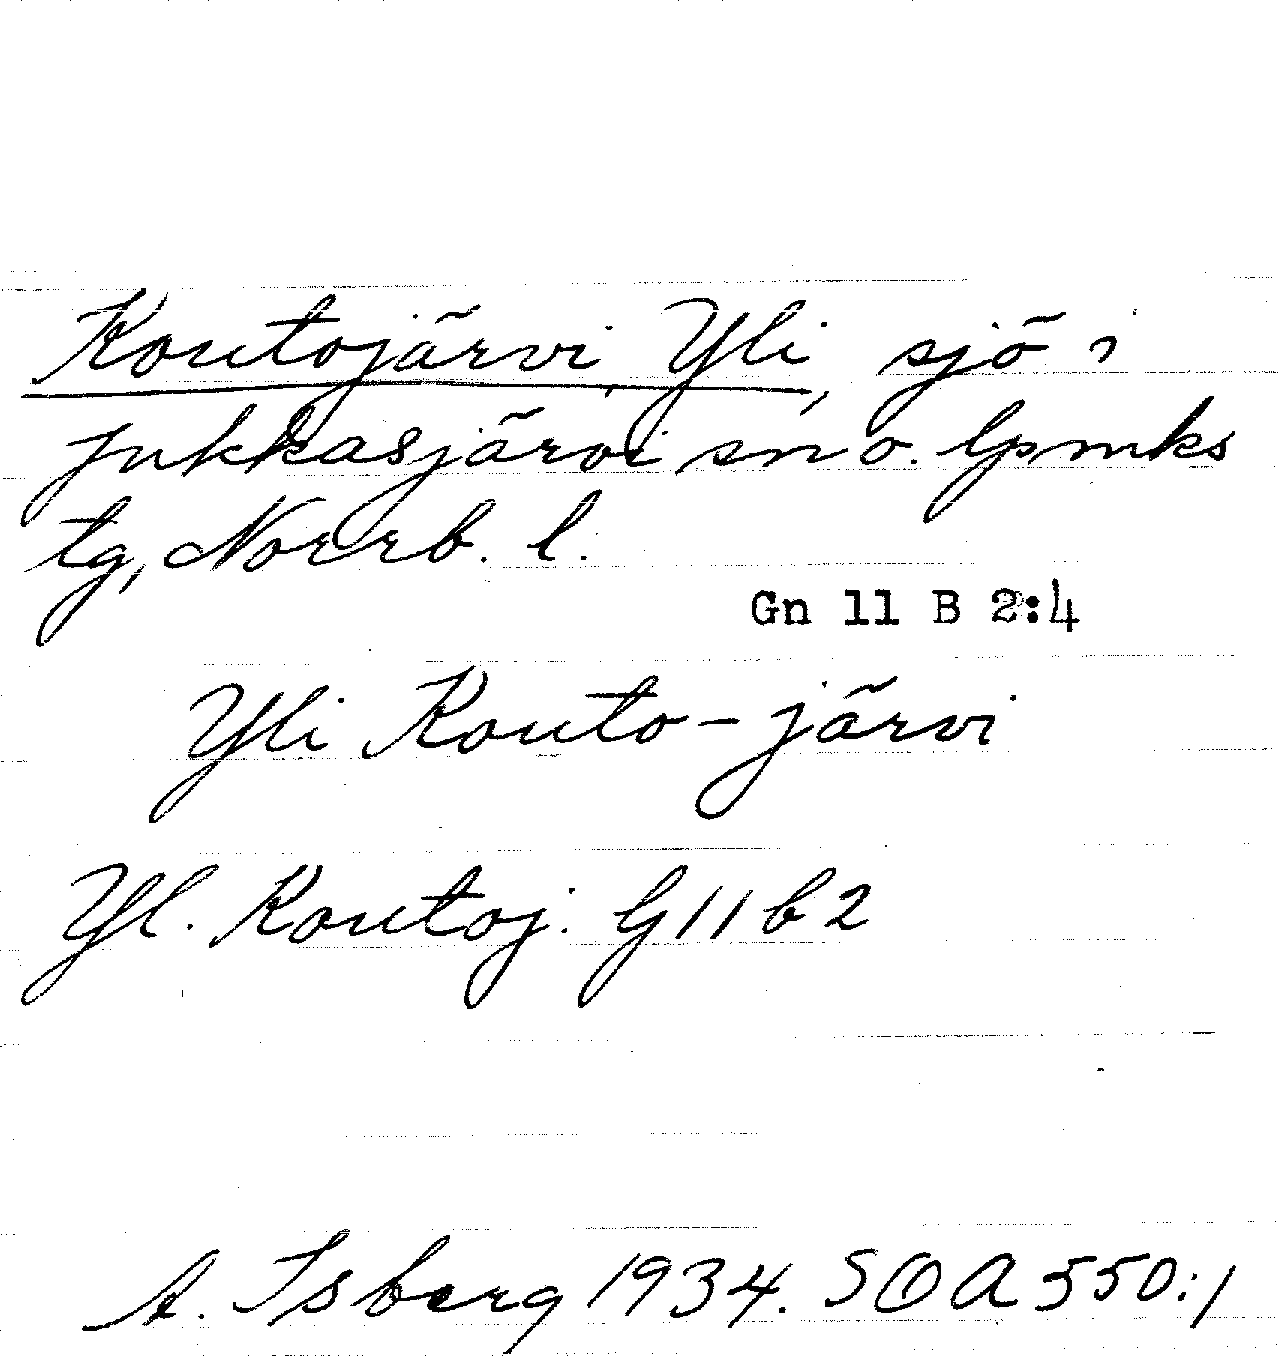 Koutojärvi, Yli, sjö i
Jukkasjärvi sn o. lpmks
tg, Norrb. l.
Gn 11 B 2:4
Yli Kouto-järvi
Yl. Koutoj. G11b2
A. Isberg 1934. SOA 550:1